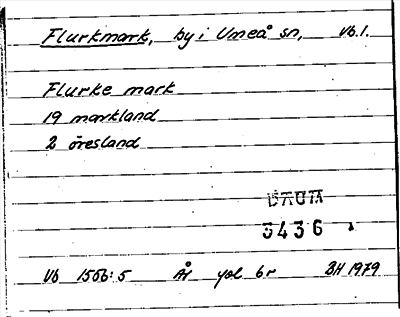 Flurkmark, by i Umeå sn, Vb.l.
Flurke mark
19 markland
2 öresland
3436
Vb 1556:5 Ål 6r BH 1979